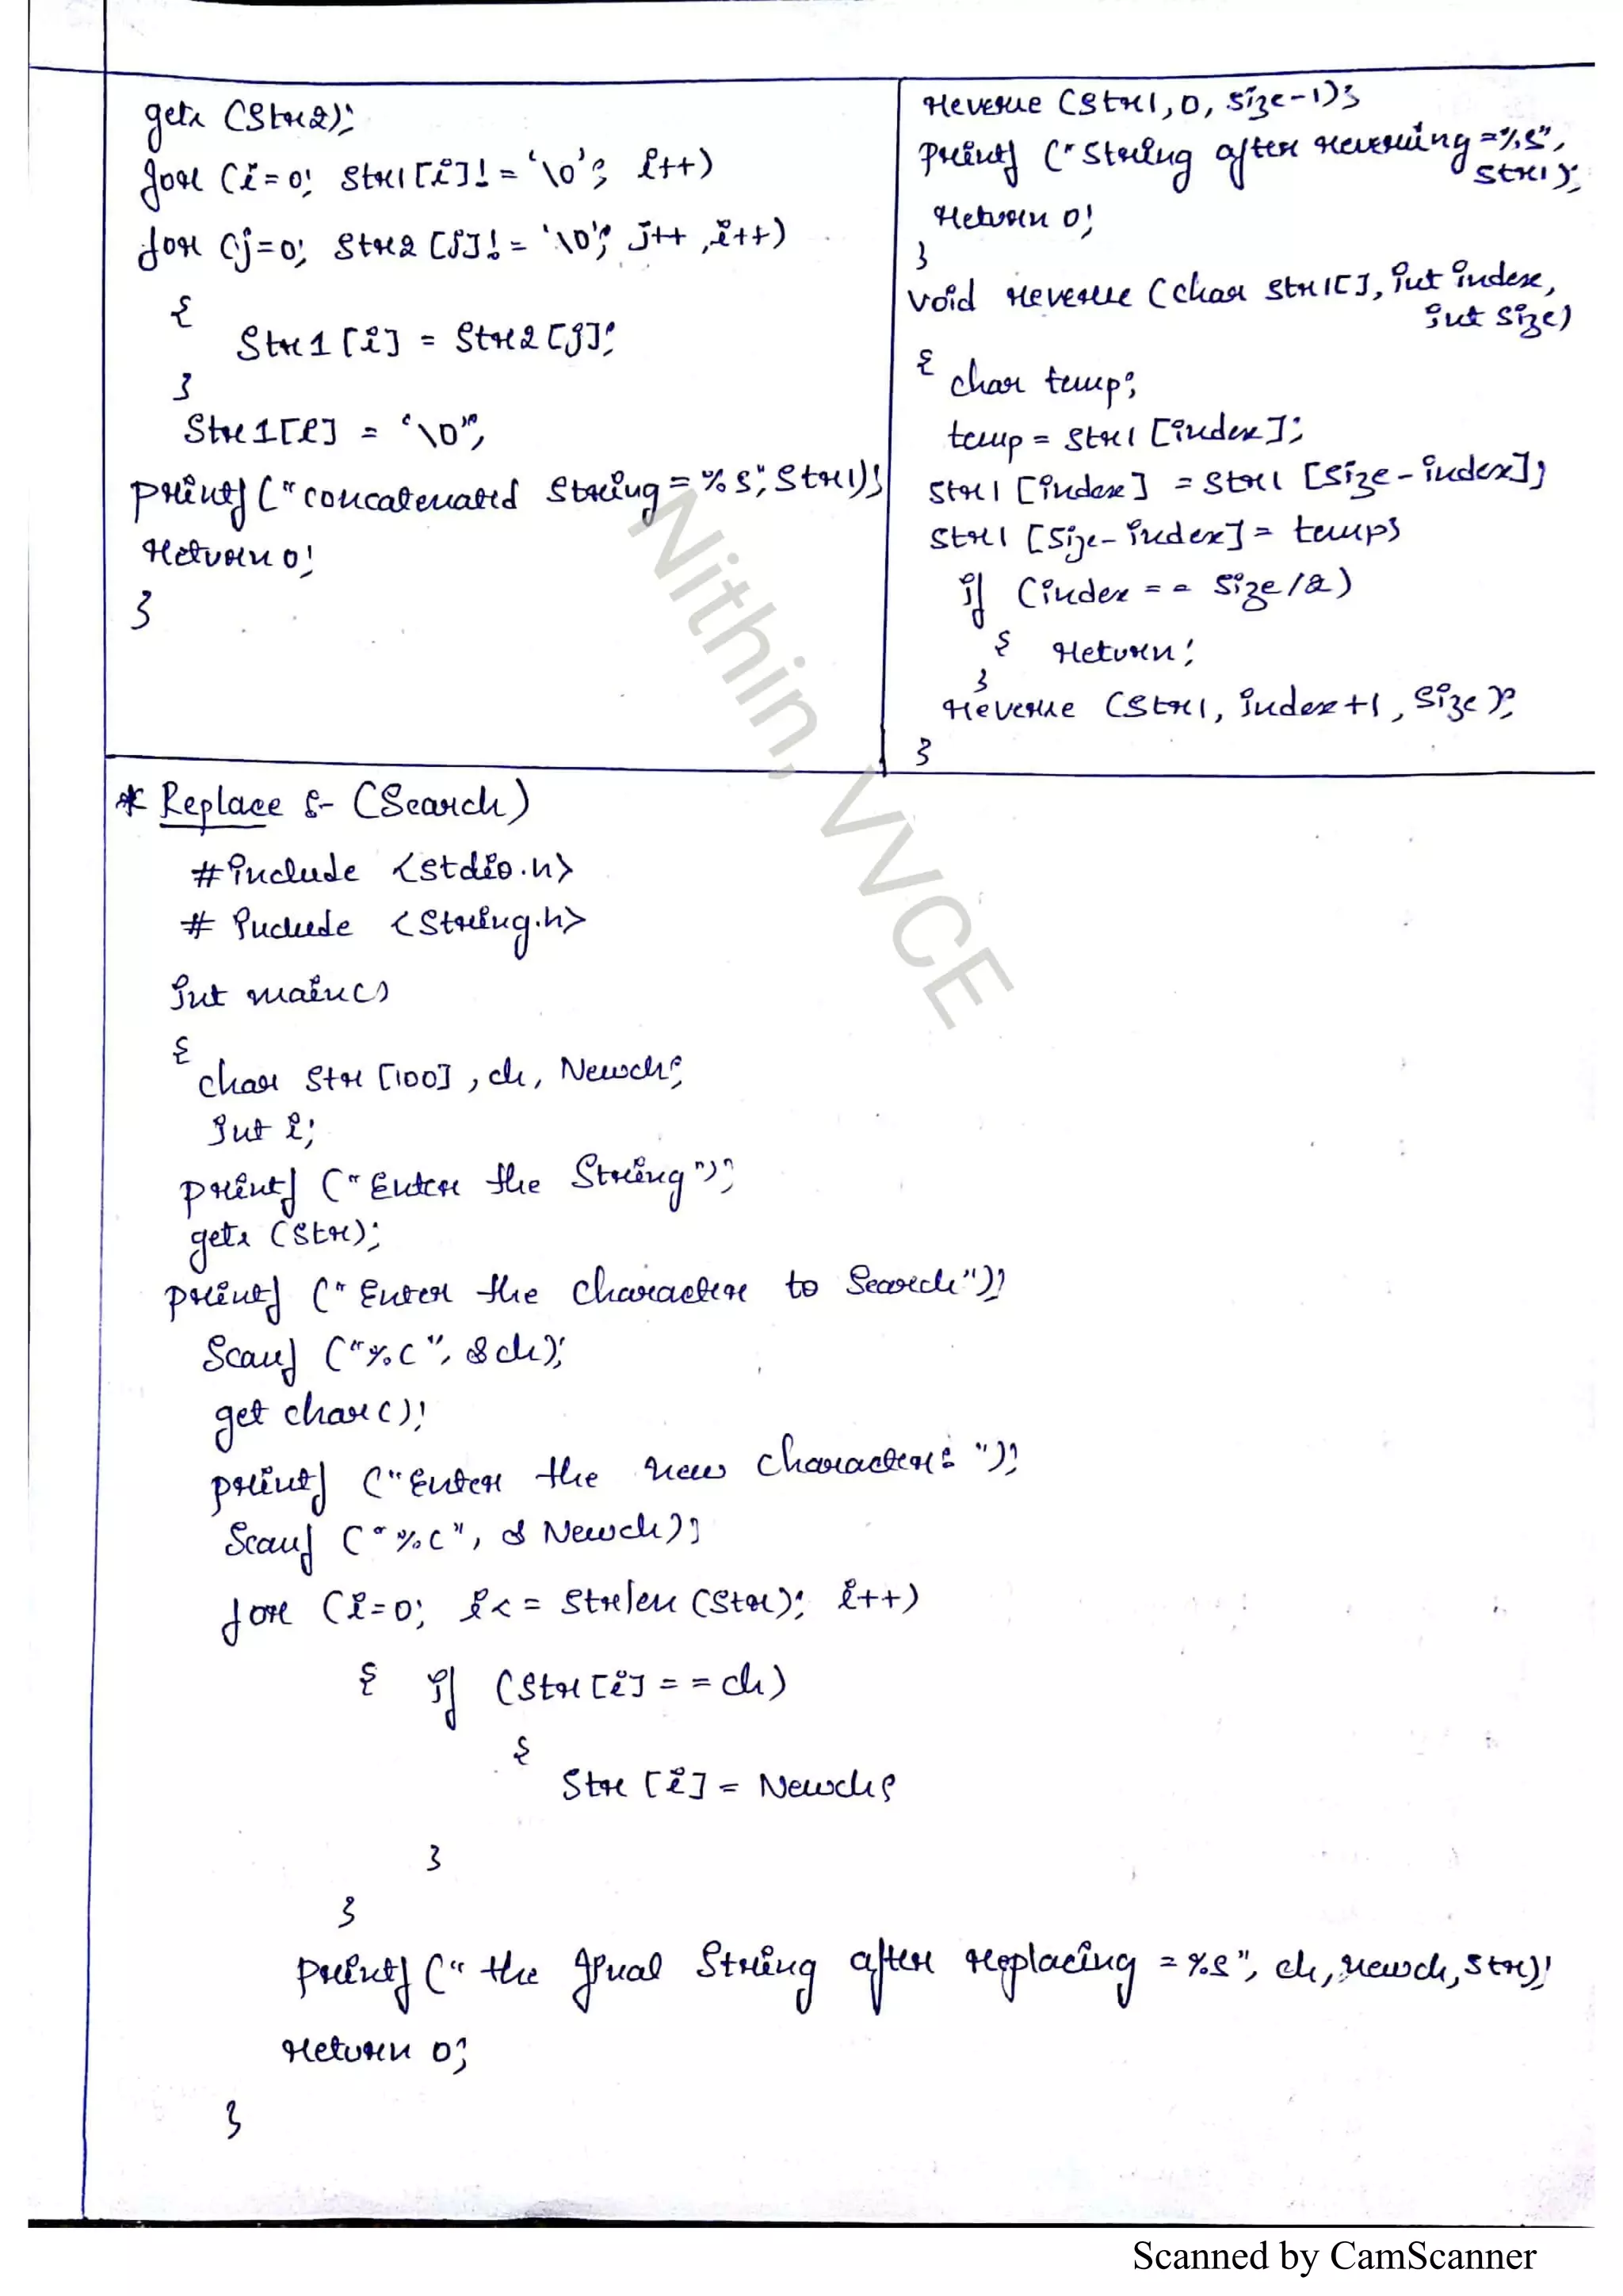 gets (Str2);
for (i=0; Str1[i]!='\0'; i++)
for (j=0; Str2[j]!='\0'; j++,i++)
{
Str1[i] = Str2[j];
}
Str1[i] = '\0';
printf("concatenated String=%s",Str1);
return 0;
}
reverse (Str1, 0, size-1);
printf ("String after reversing=%s",
Str1);
return 0;
}
void reverse (char Str1[], int index,
int size)
{ char temp;
temp = Str1 [index];
Str1 [index] = Str1 [size-index];
Str1 [size-index] = temp;
if (index == size/2)
{ return;
}
reverse (Str1, index+1, size);
}
* Replace :- (Search)
#include <stdio.h>
# include <String.h>
int main()
{
char Str [100], ch, Newch;
Int i;
printf ("Enter the String");
gets (Str);
printf ("Enter the character to Search");
Scanf ("%c", &ch);
get char();
printf ("Enter the new character: ");
Scanf ("%c", & Newch);
for (i=0; i<=Strlen (Str); i++)
{ if (Str[i]==ch)
{
Str [i] = Newch;
}
}
printf (" the final String after replacing =%s", ch, newch, Str);
return 0;
}
Nithin, VVCE
Scanned by CamScanner